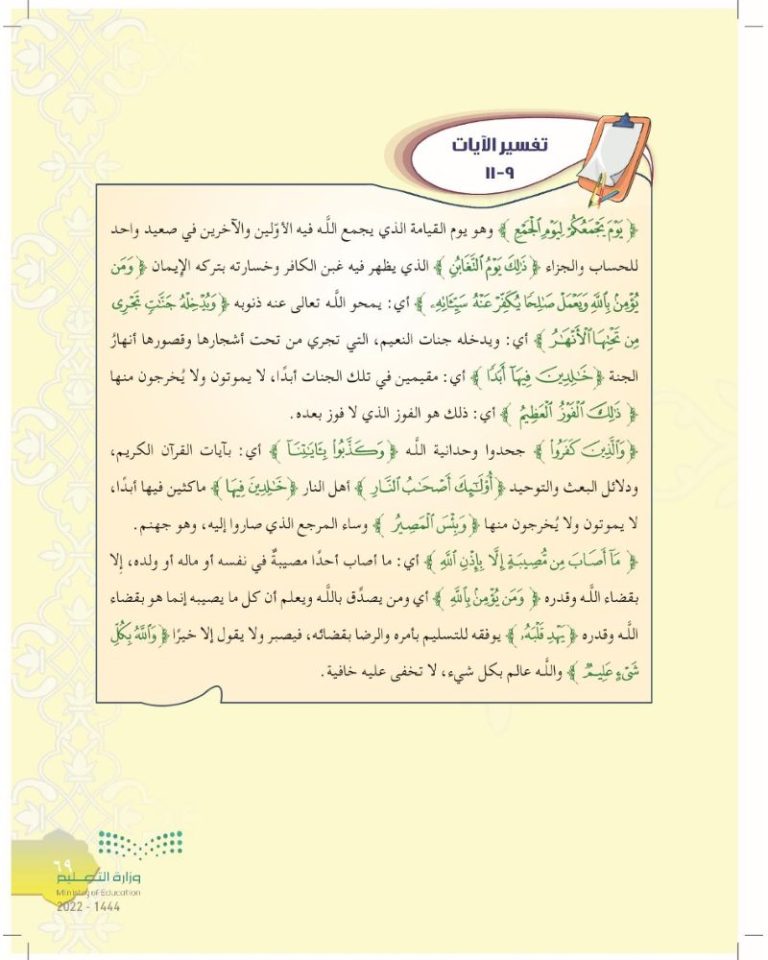 تفسير الآيات
٩-١١
﴿ يَوْمَ يَجْمَعُكُمْ لِيَوْمِ ٱلْجَمْعِ ﴾ وهو يوم القيامة الذي يجمع اللَّه فيه الأوّلين والآخرين في صعيد واحد
للحساب والجزاء ﴿ ذَٰلِكَ يَوْمُ ٱلتَّغَابُنِ ﴾ الذي يظهر فيه غبن الكافر وخسارته بتركه الإيمان ﴿ وَمَن
يُؤْمِنۢ بِٱللَّهِ وَيَعْمَلْ صَٰلِحًا يُكَفِّرْ عَنْهُ سَيِّـَٔاتِهِۦ ﴾ أي: يمحو اللَّه تعالى عنه ذنوبه ﴿ وَيُدْخِلْهُ جَنَّٰتٍ تَجْرِى
مِن تَحْتِهَا ٱلْأَنْهَٰرُ ﴾ أي: ويدخله جنات النعيم، التي تجري من تحت أشجارها وقصورها أنهارُ
الجنة ﴿ خَٰلِدِينَ فِيهَآ أَبَدًا ﴾ أي: مقيمين في تلك الجنات أبدًا، لا يموتون ولا يُخرجون منها
﴿ ذَٰلِكَ ٱلْفَوْزُ ٱلْعَظِيمُ ﴾ أي: ذلك هو الفوز الذي لا فوز بعده.
﴿ وَٱلَّذِينَ كَفَرُوا۟ ﴾ جحدوا وحدانية اللَّه ﴿ وَكَذَّبُوا۟ بِـَٔايَٰتِنَآ ﴾ أي: بآيات القرآن الكريم،
ودلائل البعث والتوحيد ﴿ أُو۟لَٰٓئِكَ أَصْحَٰبُ ٱلنَّارِ ﴾ أهل النار ﴿ خَٰلِدِينَ فِيهَا ﴾ ماكثين فيها أبدًا،
لا يموتون ولا يُخرجون منها ﴿ وَبِئْسَ ٱلْمَصِيرُ ﴾ وساء المرجع الذي صاروا إليه، وهو جهنم.
﴿ مَآ أَصَابَ مِن مُّصِيبَةٍ إِلَّا بِإِذْنِ ٱللَّهِ ﴾ أي: ما أصاب أحدًا مصيبةٌ في نفسه أو ماله أو ولده، إلا
بقضاء اللَّه وقدره ﴿ وَمَن يُؤْمِنۢ بِٱللَّهِ ﴾ أي ومن يصدّق باللَّه ويعلم أن كل ما يصيبه إنما هو بقضاء
اللَّه وقدره ﴿ يَهْدِ قَلْبَهُۥ ﴾ يوفقه للتسليم بأمره والرضا بقضائه، فيصبر ولا يقول إلا خيرًا ﴿ وَٱللَّهُ بِكُلِّ
شَىْءٍ عَلِيمٌ ﴾ واللَّه عالم بكل شيء، لا تخفى عليه خافية.
٦٩
وزارة التعليم
Ministry of Education
2022 - 1444